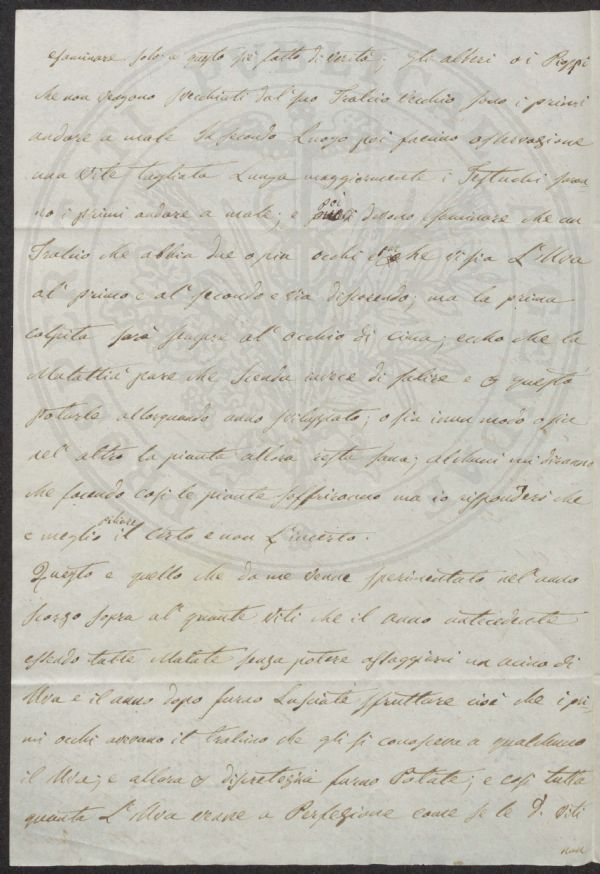 esaminare solo e questo sie fatto di verita; Gli alberi o i Pioppi
che non vengono secchiati dal suo Tralcio Vecchio sono i primi
andare a male In secondo Luogo poi facino osservazione
una Vite tagliata Lunga maggiormente i Testuchi sara-
no i primi andare a male; e poi devono esaminare che un
Tralcio che abbia due o piu occhi che vi sia L'Uva
al' primo e al' secondo e via discorendo; ma la prima
colpita sarà sempre al' occhio di cima; echo che la
Malattia pare che Scenda invece di salire e questo
Potarle allorquando anno sviluppato; o sia inun modo o sia
nel' altro la pianta allora resta sana; alchuni mi diranno
che facendo cosi le piante soffriranno ma io risponderi che
e meglio il Certo e non L'incerto.
Questo e quello che da me venne sperimentato nel' anno
scorso sopra al' quante Viti che il anno antecedente
essendo tutte Malate senza potere assaggiarsi un acino di
Uva e il anno dopo furno Lasciate sfruttare cioè che i pri-
mi occhi avevano il tralcino che gli si conosceva a qualchuno
il Uva; e allora furno Potate; e cosi tutta
quanta L'Uva venne a Perfezione come se le d. Viti
non